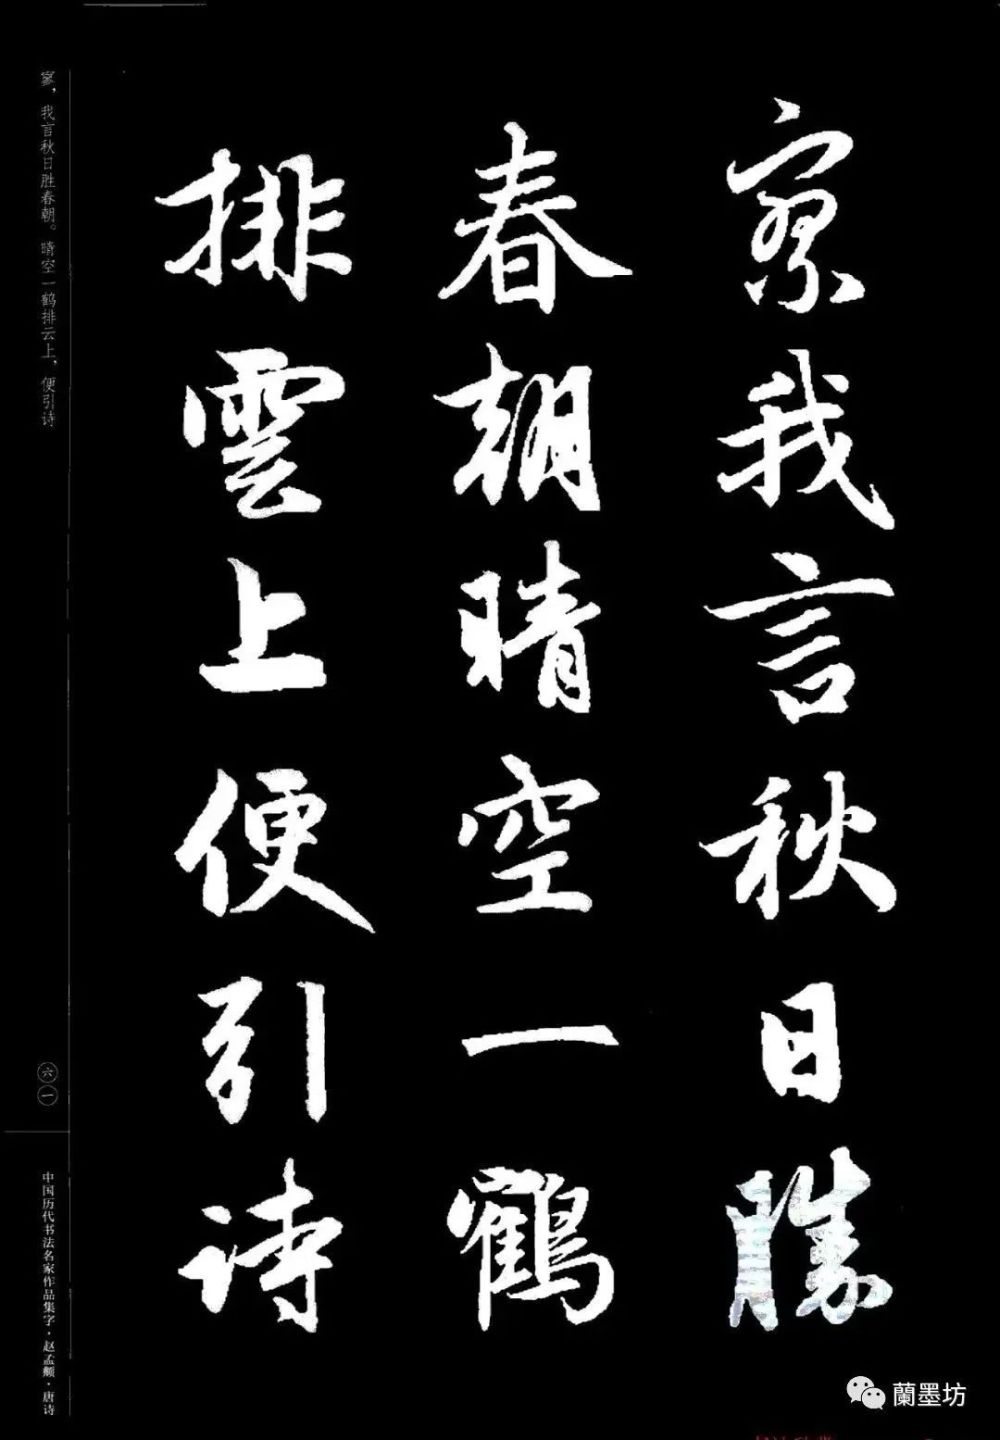 寥我言秋日勝
春朝晴空一鶴
排雲上便引詩
寥，我言秋日胜春朝。晴空一鹤排云上，便引诗
六一
中国历代书法名家作品集字·赵孟頫·唐诗
蘭墨坊